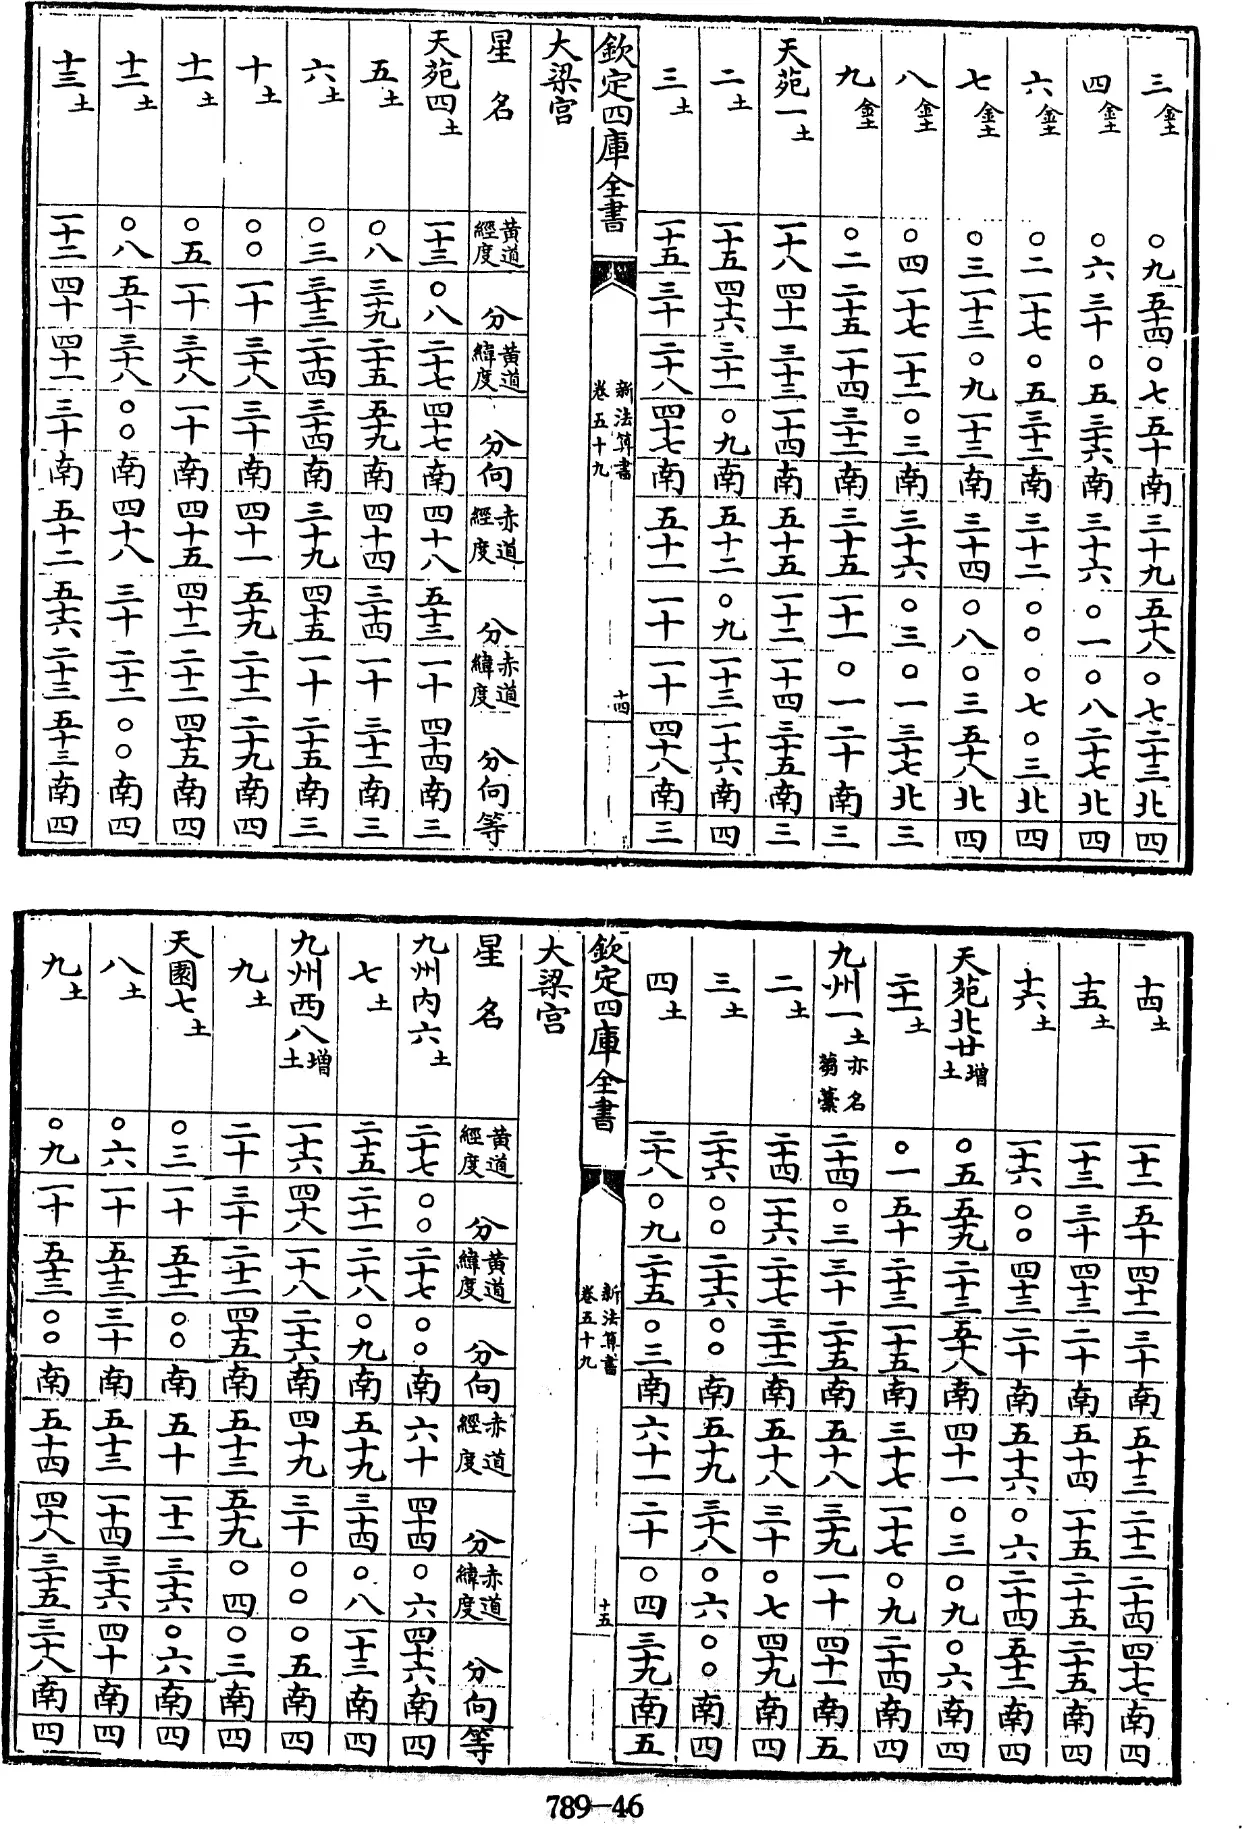 三金土〇九五十四〇七五十南三十九五十八〇七二十三北四
四金土〇六三十〇五三十六南三十六〇一〇八二十七北四
六金土〇二一十七〇五三十二南三十二〇〇〇七〇三北四
七金土〇三一十三〇九一十三南三十四〇八〇三五十八北四
八金土〇四一十七一十二〇三南三十六〇三〇一三十七北三
九金土〇二二十五一十四三十二南三十五二十一〇一二十南三
天苑一土一十八四十一三十三一十四南五十五一十二一十四三十五南三
二土一十五四十六三十一〇九南五十二〇九一十三一十六南四
三土一十五三十二十八四十七南五十一一十一十四十八南三
欽定四庫全書
新法算書
卷五十九
十四
大梁宮
星名黃道經度分黃道緯度分向赤道經度分赤道緯度分向等
天苑四土一十三〇八二十七四十七南四十八五十三一十四十四南三
五土〇八三十九二十五五十九南四十四三十四一十三十二南三
六土〇三三十三二十四三十四南三十九四十五一十二十五南三
十土〇〇一十三十八三十南四十一五十九二十二二十九南四
十一土〇五一十三十八一十南四十五四十二二十二四十五南四
十二土〇八五十三十八〇〇南四十八三十二十二〇〇南四
十三土一十二四十四十一三十南五十二五十六二十三五十三南四
十四土一十二五十四十二三十南五十三二十二二十四四十七南四
十五土一十三三十四十三二十南五十四一十五二十五二十五南四
十六土一十六〇〇四十三二十南五十六〇六二十四五十二南四
天苑北廿增土〇五五十九二十三五十八南四十一〇三〇九〇六南四
二十一土〇一五十二十三一十五南三十七一十七〇九二十四南四
九州一土亦名蒭藁二十四〇三三十二十五南五十八三十九一十四十一南五
二土二十四一十六二十七三十二南五十八三十〇七四十九南四
三土二十六〇〇二十六〇〇南五十九三十八〇六〇〇南四
四土二十八〇九二十五〇三南六十一二十〇四三十九南五
欽定四庫全書
新法算書
卷五十九
十五
大梁宮
星名黃道經度分黃道緯度分向赤道經度分赤道緯度分向等
九州內六土二十七〇〇二十七〇〇南六十四十四〇六四十六南四
七土二十五二十一二十八〇九南五十九三十四〇八一十三南四
九州西八增土一十六四十八一十八二十六南四十九三十〇〇〇五南四
九土二十三十二十二四十五南五十三五十九〇四〇三南四
天園七土〇三一十五十二〇〇南五十一十二三十六〇六南四
八土〇六一十五十三三十南五十三一十四三十六四十南四
九土〇九一十五十三〇〇南五十四四十八三十五三十八南四
789—46